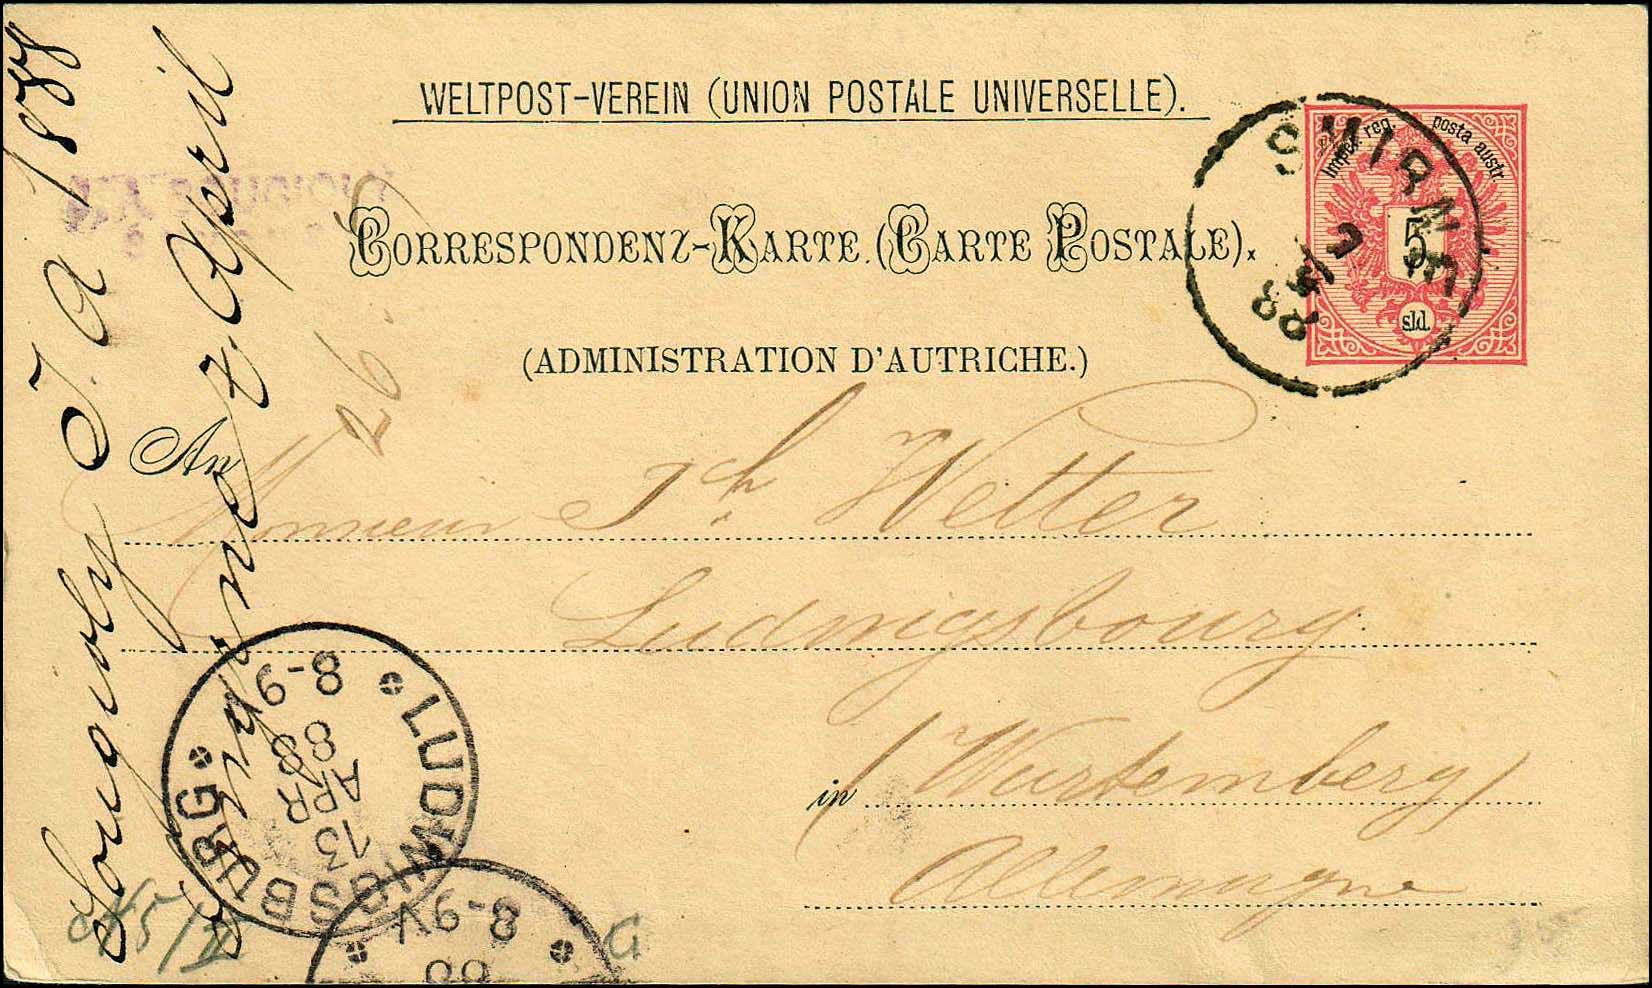 WELTPOST-VEREIN (UNION POSTALE UNIVERSELLE).
CORRESPONDENZ-KARTE. (CARTE POSTALE).
(ADMINISTRATION D'AUTRICHE.)
Imper. reg. posta austr.
5
sld.
SMIRNE
7/4
88
An
Monsieur Jh Wetter
Ludwigsbourg
in (Wurtemberg)
Allemagne
26
1888
April
LUDWIGSBURG
13
APR
88
8-9
8-9V
88
G